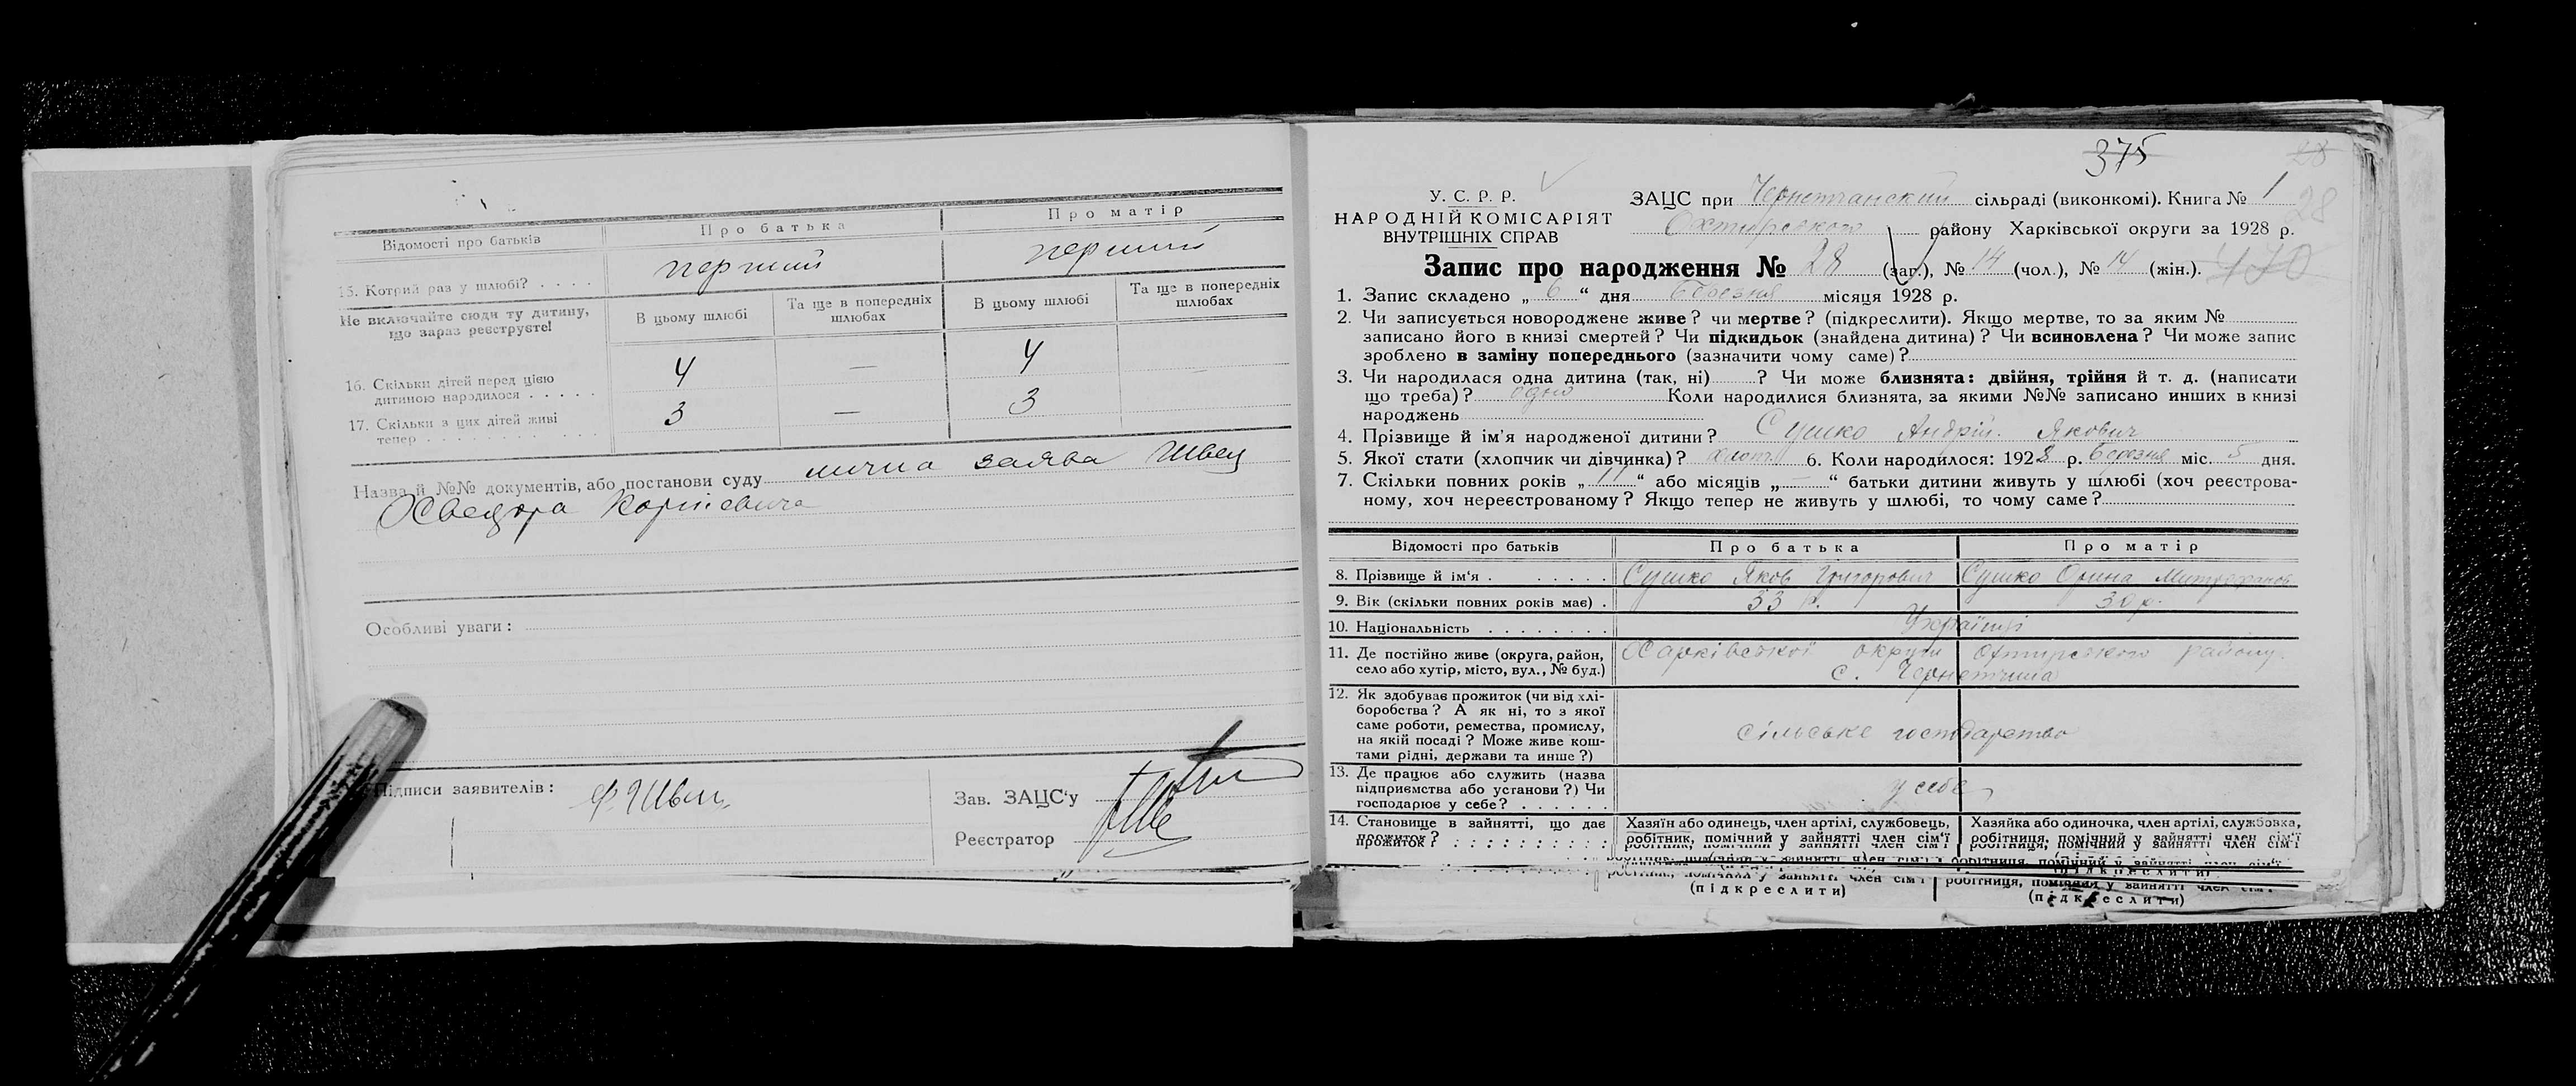 Відомості про батьків
Про батька
Про матір
15. Котрий раз у шлюбі? . . . .
перший
перший
Не включайте сюди ту дитину,
що зараз реєструєте!
В цьому шлюбі
Та ще в попередніх
шлюбах
В цьому шлюбі
Та ще в попередніх
шлюбах
16. Скільки дітей перед цією
дитиною народилося . . . . .
4
—
4
—
17. Скільки з цих дітей живі
тепер . . . . . . . . . . .
3
—
3
Назва й №№ документів, або постанови суду лична заява Швец
Хведора Корнієвича
Особливі уваги:
Підписи заявителів: Ф. Швец
Зав. ЗАЦС'у
Реєстратор
375
28
У. С. Р. Р.
НАРОДНІЙ КОМІСАРІЯТ
ВНУТРІШНІХ СПРАВ
ЗАЦС при Чернетчанский сільраді (виконкомі). Книга № 1
28
Охтирського району Харківської округи за 1928 р.
Запис про народження № 28 (заг.), № 14 (чол.), № 14 (жін.). 470
1. Запис складено „ 6 “ дня березня місяця 1928 р.
2. Чи записується новороджене живе? чи мертве? (підкреслити). Якщо мертве, то за яким №
записано його в книзі смертей? Чи підкидьок (знайдена дитина)? Чи всиновлена? Чи може запис
зроблено в заміну попереднього (зазначити чому саме)?
3. Чи народилася одна дитина (так, ні) ? Чи може близнята: двійня, трійня й т. д. (написати
що треба)? одно Коли народилися близнята, за якими №№ записано инших в книзі
народжень
4. Прізвище й ім'я народженої дитини? Сушко Андрій Якович
5. Якої стати (хлопчик чи дівчинка)? хлопч. 6. Коли народилося: 1928 р. березня міс. 5 дня.
7. Скільки повних років „ 11 “ або місяців „ — “ батьки дитини живуть у шлюбі (хоч реєстрова-
ному, хоч нереєстрованому? Якщо тепер не живуть у шлюбі, то чому саме?
Відомості про батьків
Про батька
Про матір
8. Прізвище й ім'я . . . . . .
Сушко Яков Григорович
Сушко Орина Митрофанов
9. Вік (скільки повних років має) .
33 р.
30 р.
10. Національність . . . . . . . .
Українці
11. Де постійно живе (округа, район,
село або хутір, місто, вул., № буд.)
Харківської округи Охтирського району
с. Чернетчина
12. Як здобуває прожиток (чи від хлі-
боробства? А як ні, то з якої
саме роботи, ремества, промислу,
на якій посаді? Може живе кош-
тами рідні, держави та инше?)
сільське господарство
13. Де працює або служить (назва
підприємства або установи?) Чи
господарює у себе? . . . . . .
у себе
14. Становище в зайнятті, що дає
прожиток? . . . . . . . . . .
Хазяїн або одинець, член артілі, службовець,
робітник, помічний у зайнятті член сім'ї
Хазяйка або одиночка, член артілі, службовка,
робітниця, помічний у зайнятті член сім'ї
(підкреслити)
(підкреслити)